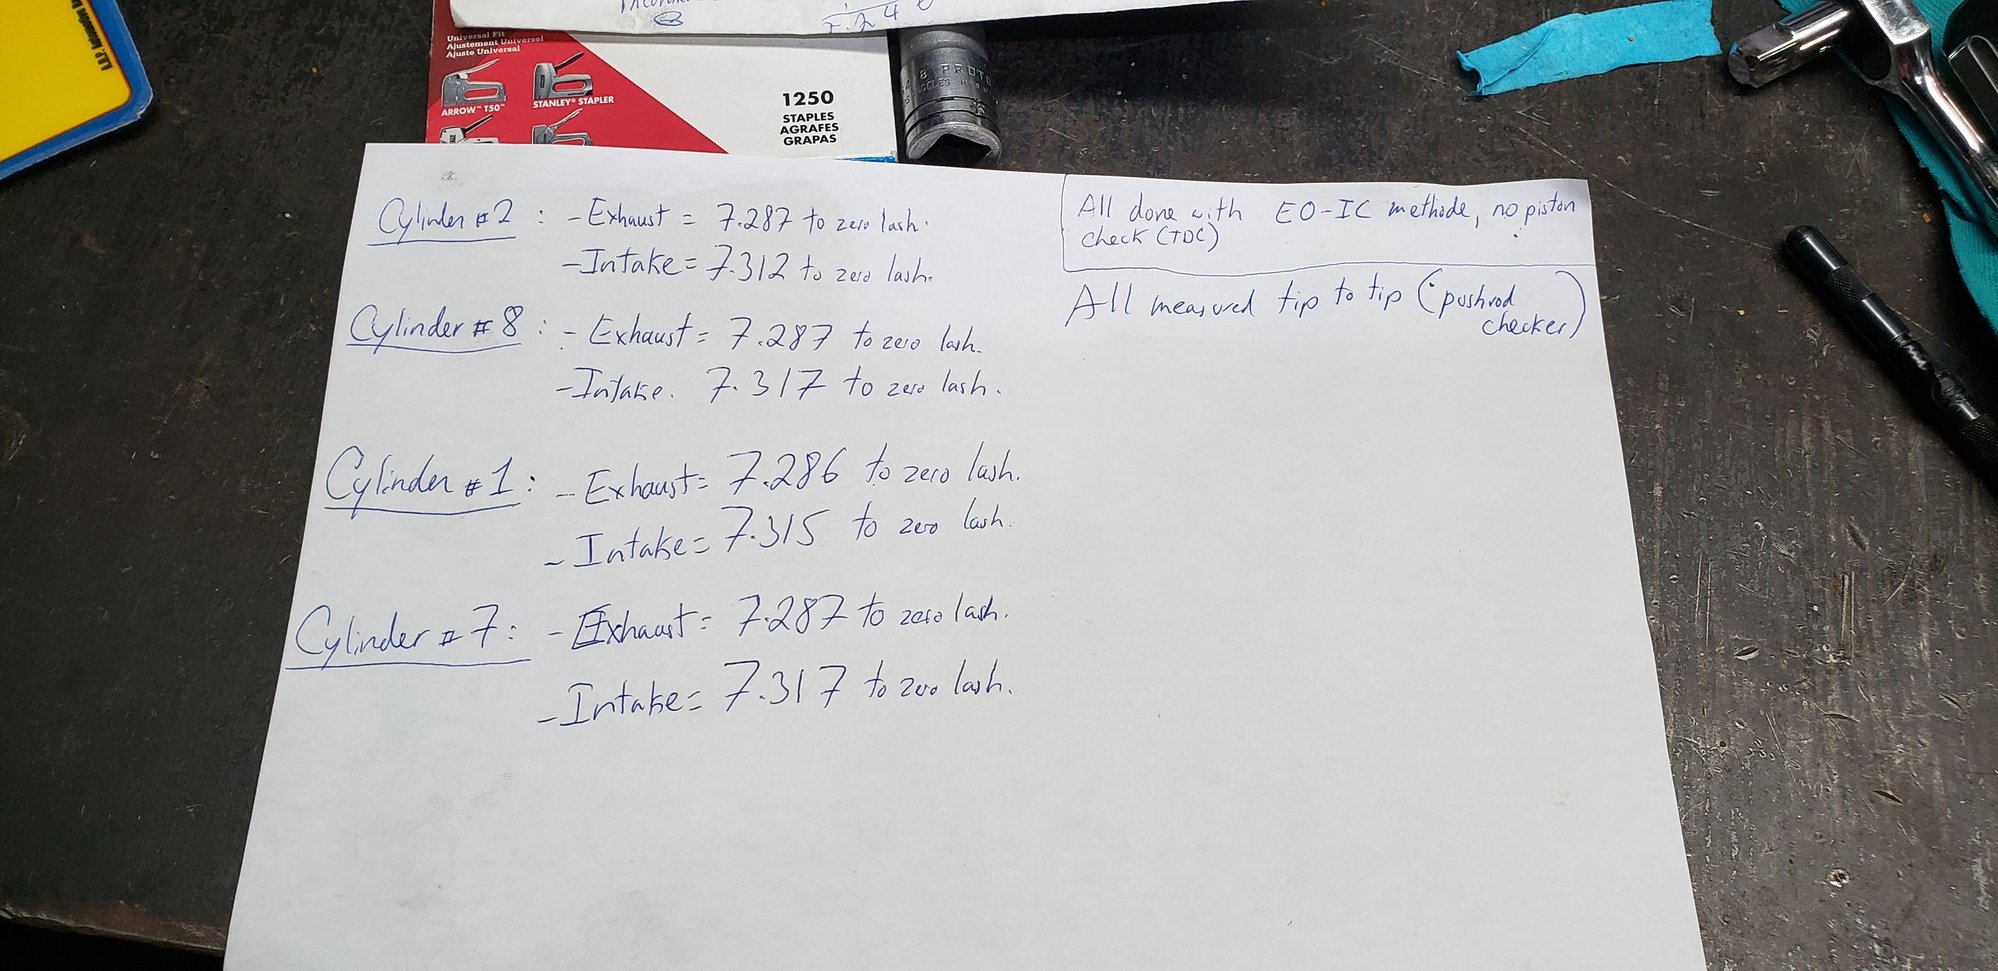 2.24
Universal Fit
Ajustement Universel
Ajuste Universal
ARROW™ T50™
STANLEY® STAPLER
1250
STAPLES
AGRAFES
GRAPAS
PROTO
Cylinder #2 : - Exhaust = 7.287 to zero lash.
- Intake = 7.312 to zero lash.
Cylinder #8 : - Exhaust = 7.287 to zero lash.
- Intake. 7.317 to zero lash.
Cylinder #1 : - Exhaust = 7.286 to zero lash.
- Intake = 7.315 to zero lash.
Cylinder #7 : - Exhaust = 7.287 to zero lash.
- Intake = 7.317 to zero lash.
All done with EO-IC methode, no piston
check (TDC)
All measured tip to tip (pushrod
checker)